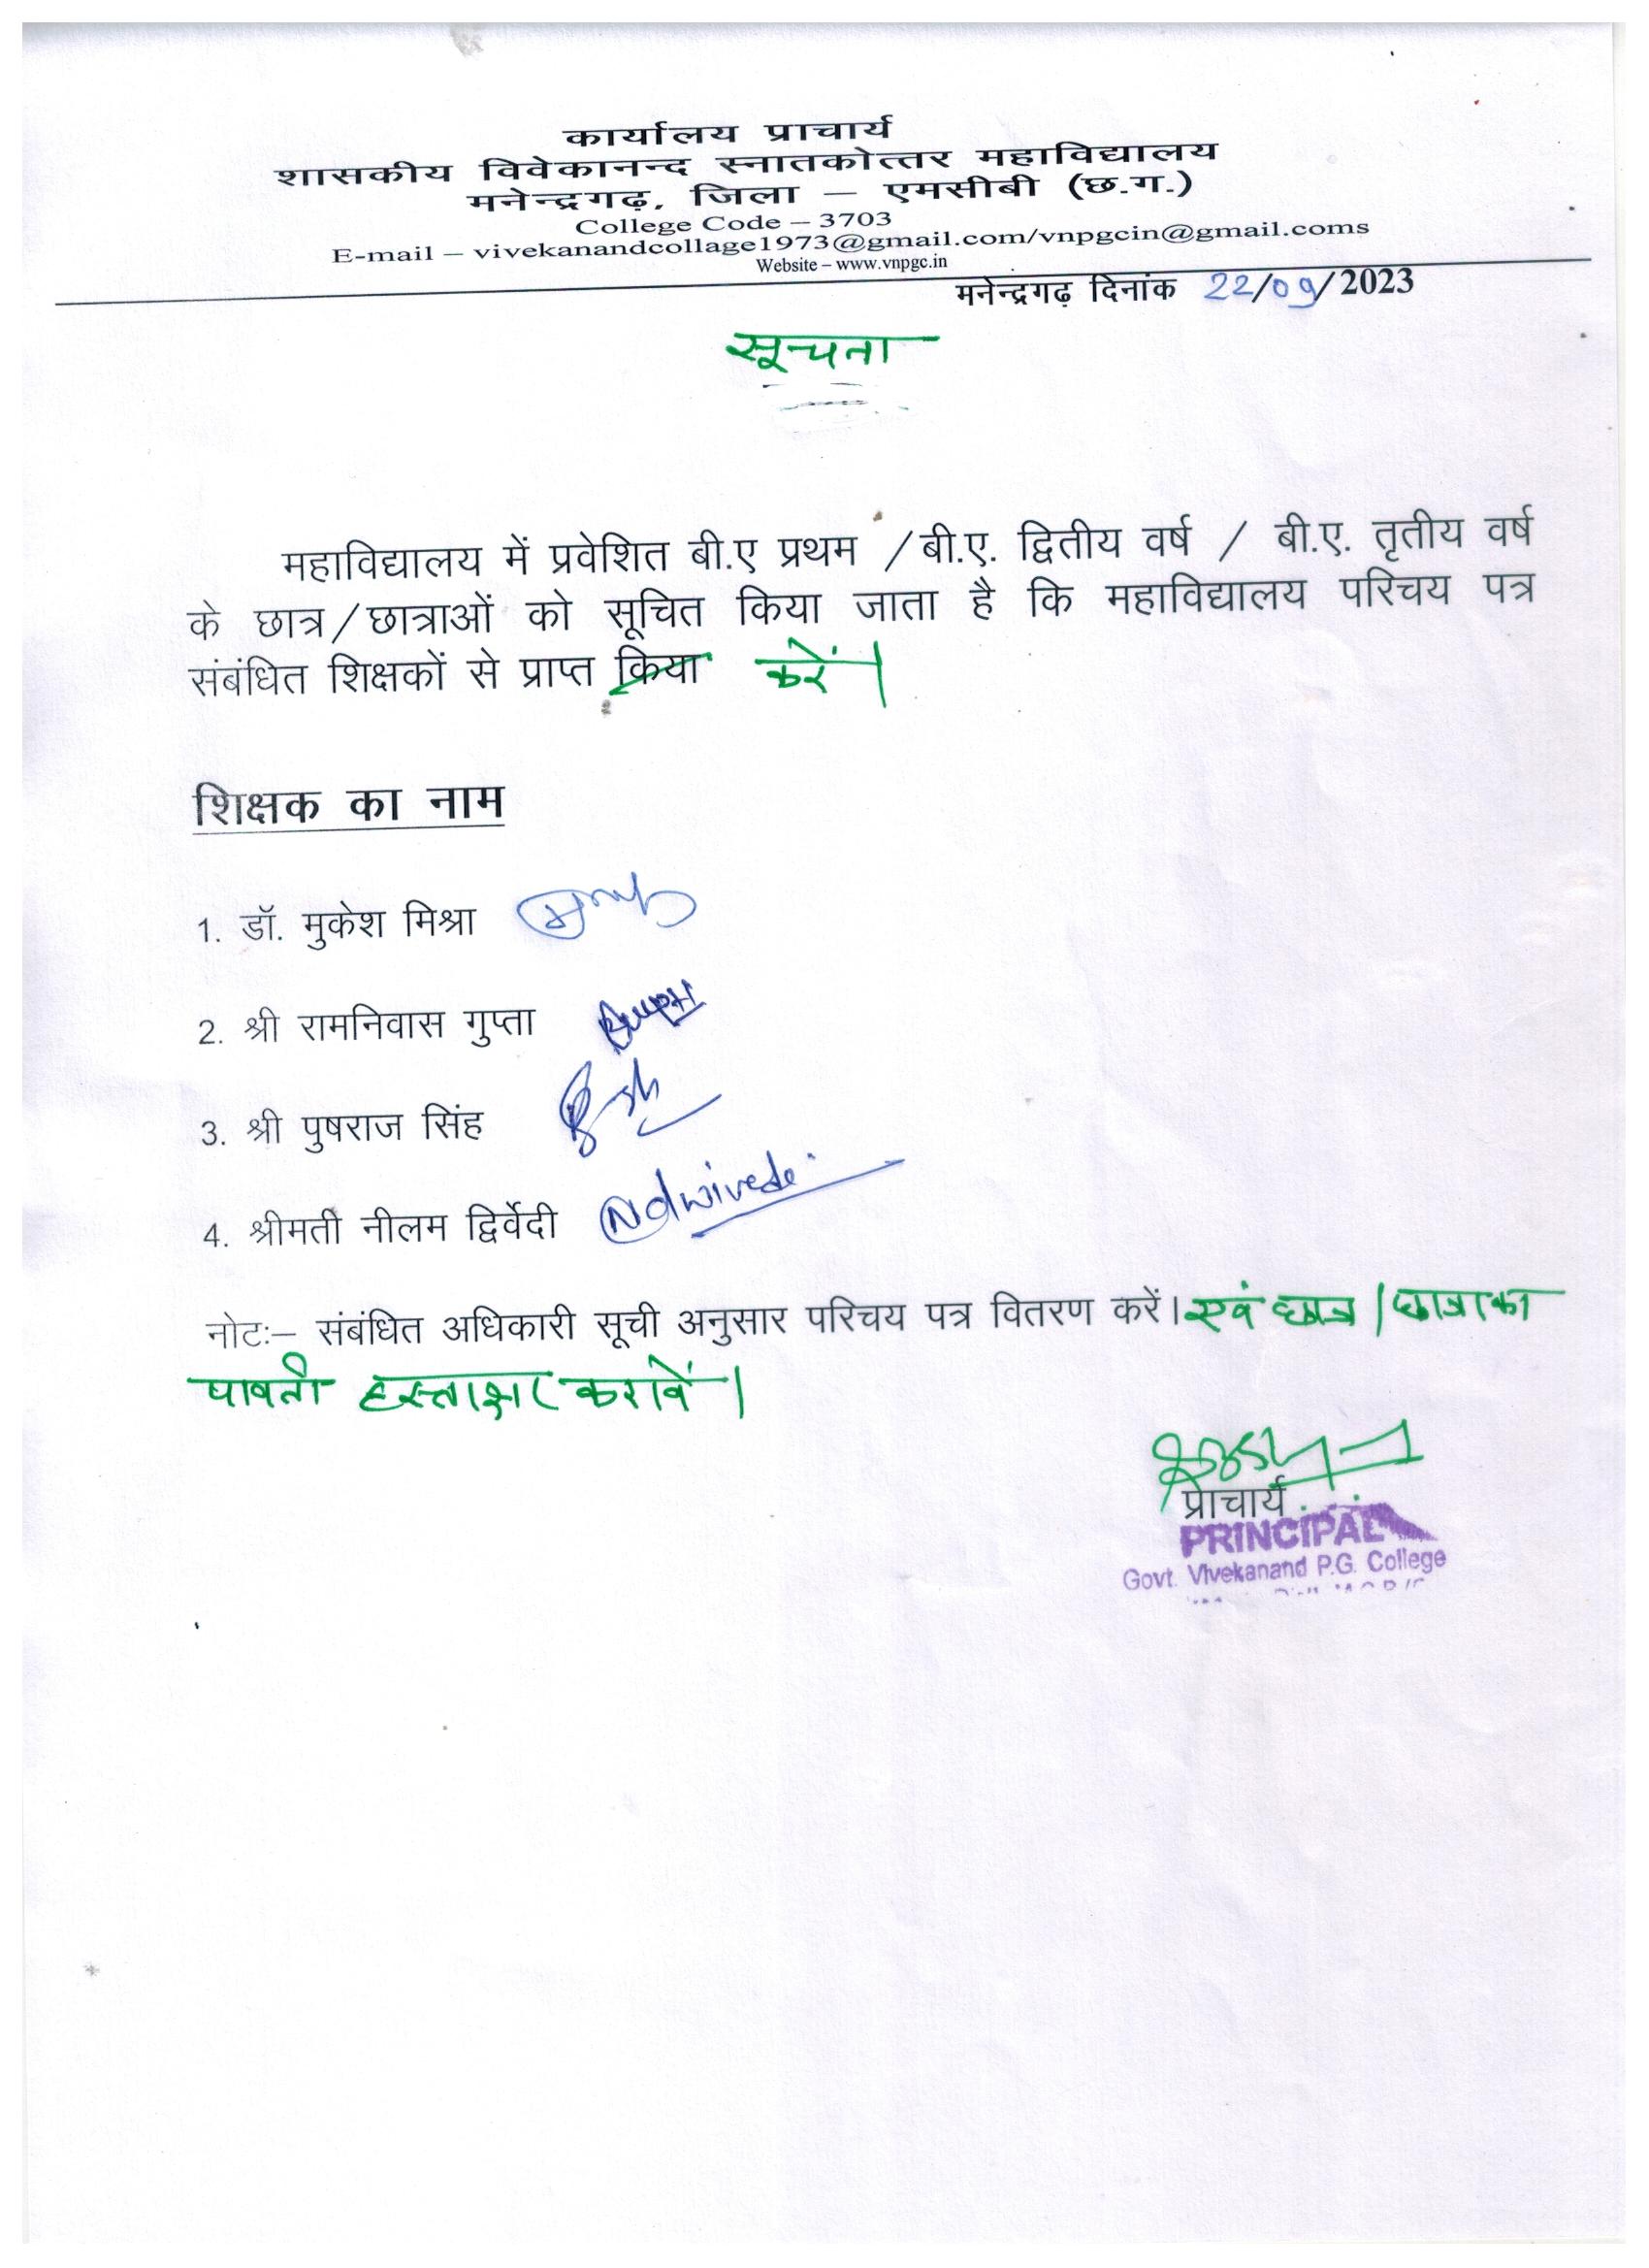 कार्यालय प्राचार्य
शासकीय विवेकानन्द स्नातकोत्तर महाविद्यालय
मनेन्द्रगढ़, जिला – एमसीबी (छ.ग.)
College Code – 3703
E-mail – vivekanandcollage1973@gmail.com/vnpgcin@gmail.coms
Website – www.vnpgc.in
मनेन्द्रगढ़ दिनांक 22/09/2023
सूचना
महाविद्यालय में प्रवेशित बी.ए प्रथम /बी.ए. द्वितीय वर्ष / बी.ए. तृतीय वर्ष
के छात्र/छात्राओं को सूचित किया जाता है कि महाविद्यालय परिचय पत्र
संबंधित शिक्षकों से प्राप्त किया करें।
शिक्षक का नाम
1. डॉ. मुकेश मिश्रा
2. श्री रामनिवास गुप्ता
3. श्री पुषराज सिंह
4. श्रीमती नीलम द्विर्वेदी Ndwivedi
नोटः– संबंधित अधिकारी सूची अनुसार परिचय पत्र वितरण करें। एवं छात्र/छात्रा का
पावती हस्ताक्षर करावें।
प्राचार्य
PRINCIPAL
Govt. Vivekanand P.G. College